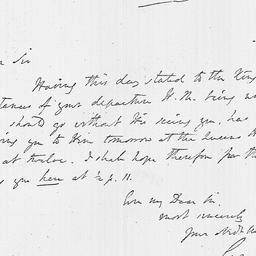 Sir
Having this day stated to the King
of your departure H.M. being
should go without His seeing you, has
you to Him tomorrow at the Queens
at twelve. I shall hope therefore for the
you here at ½ p. 11.
Ever my Dear Sir.
most sincerely
your